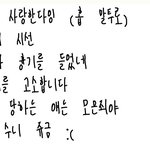 사랑한다잉 (홉 말투로)
시선
향기를 들었네
를 고소합니다
당하는 얘는 모은죄야
수니 쥬금 :(